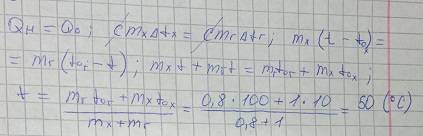 Qн = Qo ; c mx Δtx = c mг Δtг ; mx (t - tox) =
= mг (toг - t) ; mx t + mг t = mг toг + mx tox ;
t = (mг toг + mx tox) / (mx + mг) = (0,8 · 100 + 1 · 10) / (0,8 + 1) = 50 (°C)